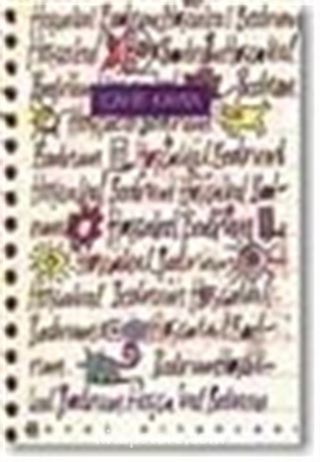 Hoşçakal Bodrum Hoşçakal Bodrum
Hoşçakal Bodrum Hoşçakal
Bodrum Bodrum
CAHİT KAYRA
Hoşçakal Bodrum
Bodrum Hoşçakal Bodrum
Hoşçakal Bodrum Hoşçakal Bod-
rum Hoşçakal Bodrum
Hoşçakal Bodrum
Hoşçakal Bodrum Hoşçakal
Bodrum Hoşçakal Bod-
rum Bodrum Hoşça-
kal Bodrum Hoşça kal Bodrum